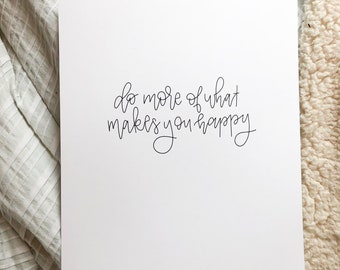 do more of what
makes you happy